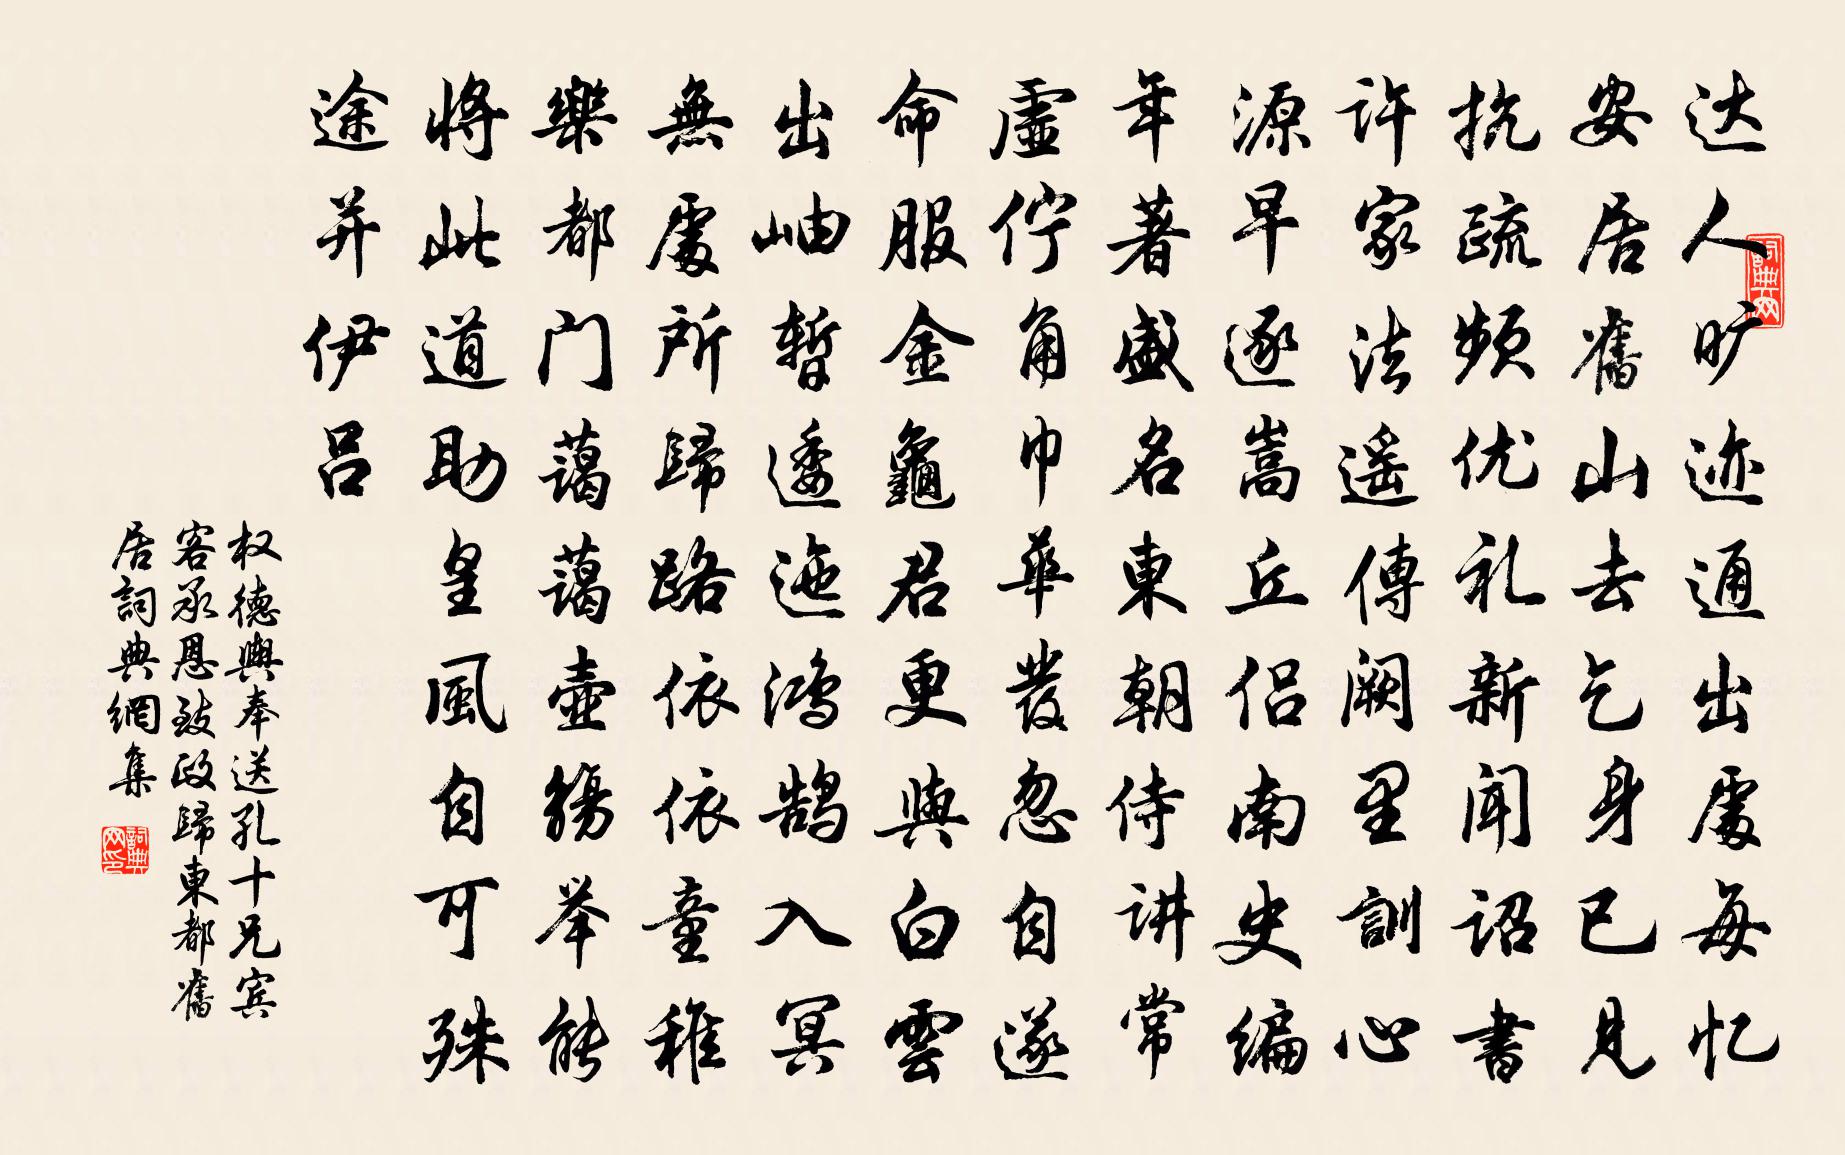 达人旷迹通出處每忆
安居舊山去乞身已见
抗疏频优礼新闻诏書
许家法遥傳阙里訓心
源早逐嵩丘侣南史编
年著盛名東朝侍讲常
虚伫角巾華发忽自遂
命服金龜君更與白雲
出岫暫逶迤鸿鹄入冥
無處所歸路依依童稚
樂都门蔼蔼壷觞举能
将此道助皇風自可殊
途并伊吕
权德輿奉送孔十兄宾
客承恩致政歸東都舊
居詞典網集
詞典网
詞典网印